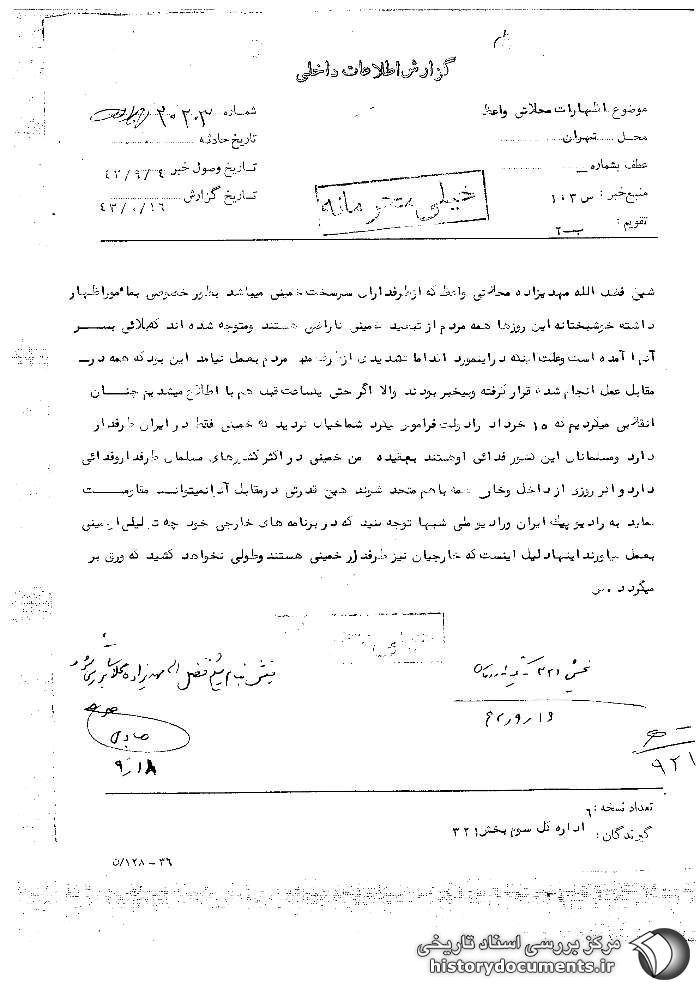 گزارش اطلاعات داخلی
موضوع: اظهارات محلاتی واعظ
شماره ۳۰۲۰۳
محل تهران
تاریخ حادثه
عطف بشماره
تاریخ وصول خبر ۴۳/۹/۴
منبع خبر: س ۱۰۳
تاریخ گزارش ۴۳/۰/۱۶
تقویم: ب-۲
خیلی محرمانه
شیخ فضل الله مهدیزاده محلاتی واعظ که از طرفداران سرسخت خمینی میباشد بطور خصوصی بمأمور اظهار
داشته خوشبختانه این روزها همه مردم از تبعید خمینی ناراضی هستند و متوجه شده اند که بلائی بسر
آنها آمده است و علت اینکه در اینمورد اقدامات شدیدی از طرف مردم بعمل نیامد این بود که همه در
مقابل عمل انجام شده قرار گرفته و بیخبر بودند والا اگر حتی یکساعت قبل هم با اطلاع میشدیم چنان
انقلابی میکردیم که ۱۵ خرداد را دولت فراموش بکند شما خیال نکنید که خمینی فقط در ایران طرفدار
دارد و مسلمانان این کشور فدائی او هستند بعقیده من خمینی در اکثر کشورهای مسلمان طرفدار و فدائی
دارد و اگر روزی از داخل و خارج همه با هم متحد شوند هیچ قدرتی در مقابل آنها نمیتواند مقاومت
نماید به رادیو پیک ایران و رادیو ملی شبها توجه کنید که در برنامه های خارجی خود چه تجلیلی از خمینی
بعمل میآورند اینها دلیل اینست که خارجیان نیز طرفدار خمینی هستند و طولی نخواهد کشید که ورق بر
میگردد . س
بخش ۳۲۱
فیش بنام شیخ فضل اله مهدیزاده محلاتی
۹/۱۸
۹۲۱
تعداد نسخه: ۶
گیرندگان: اداره کل سوم بخش ۳۲۱
۳۶-۱۲۸/ن
مرکز بررسی اسناد تاریخی
historydocuments.ir